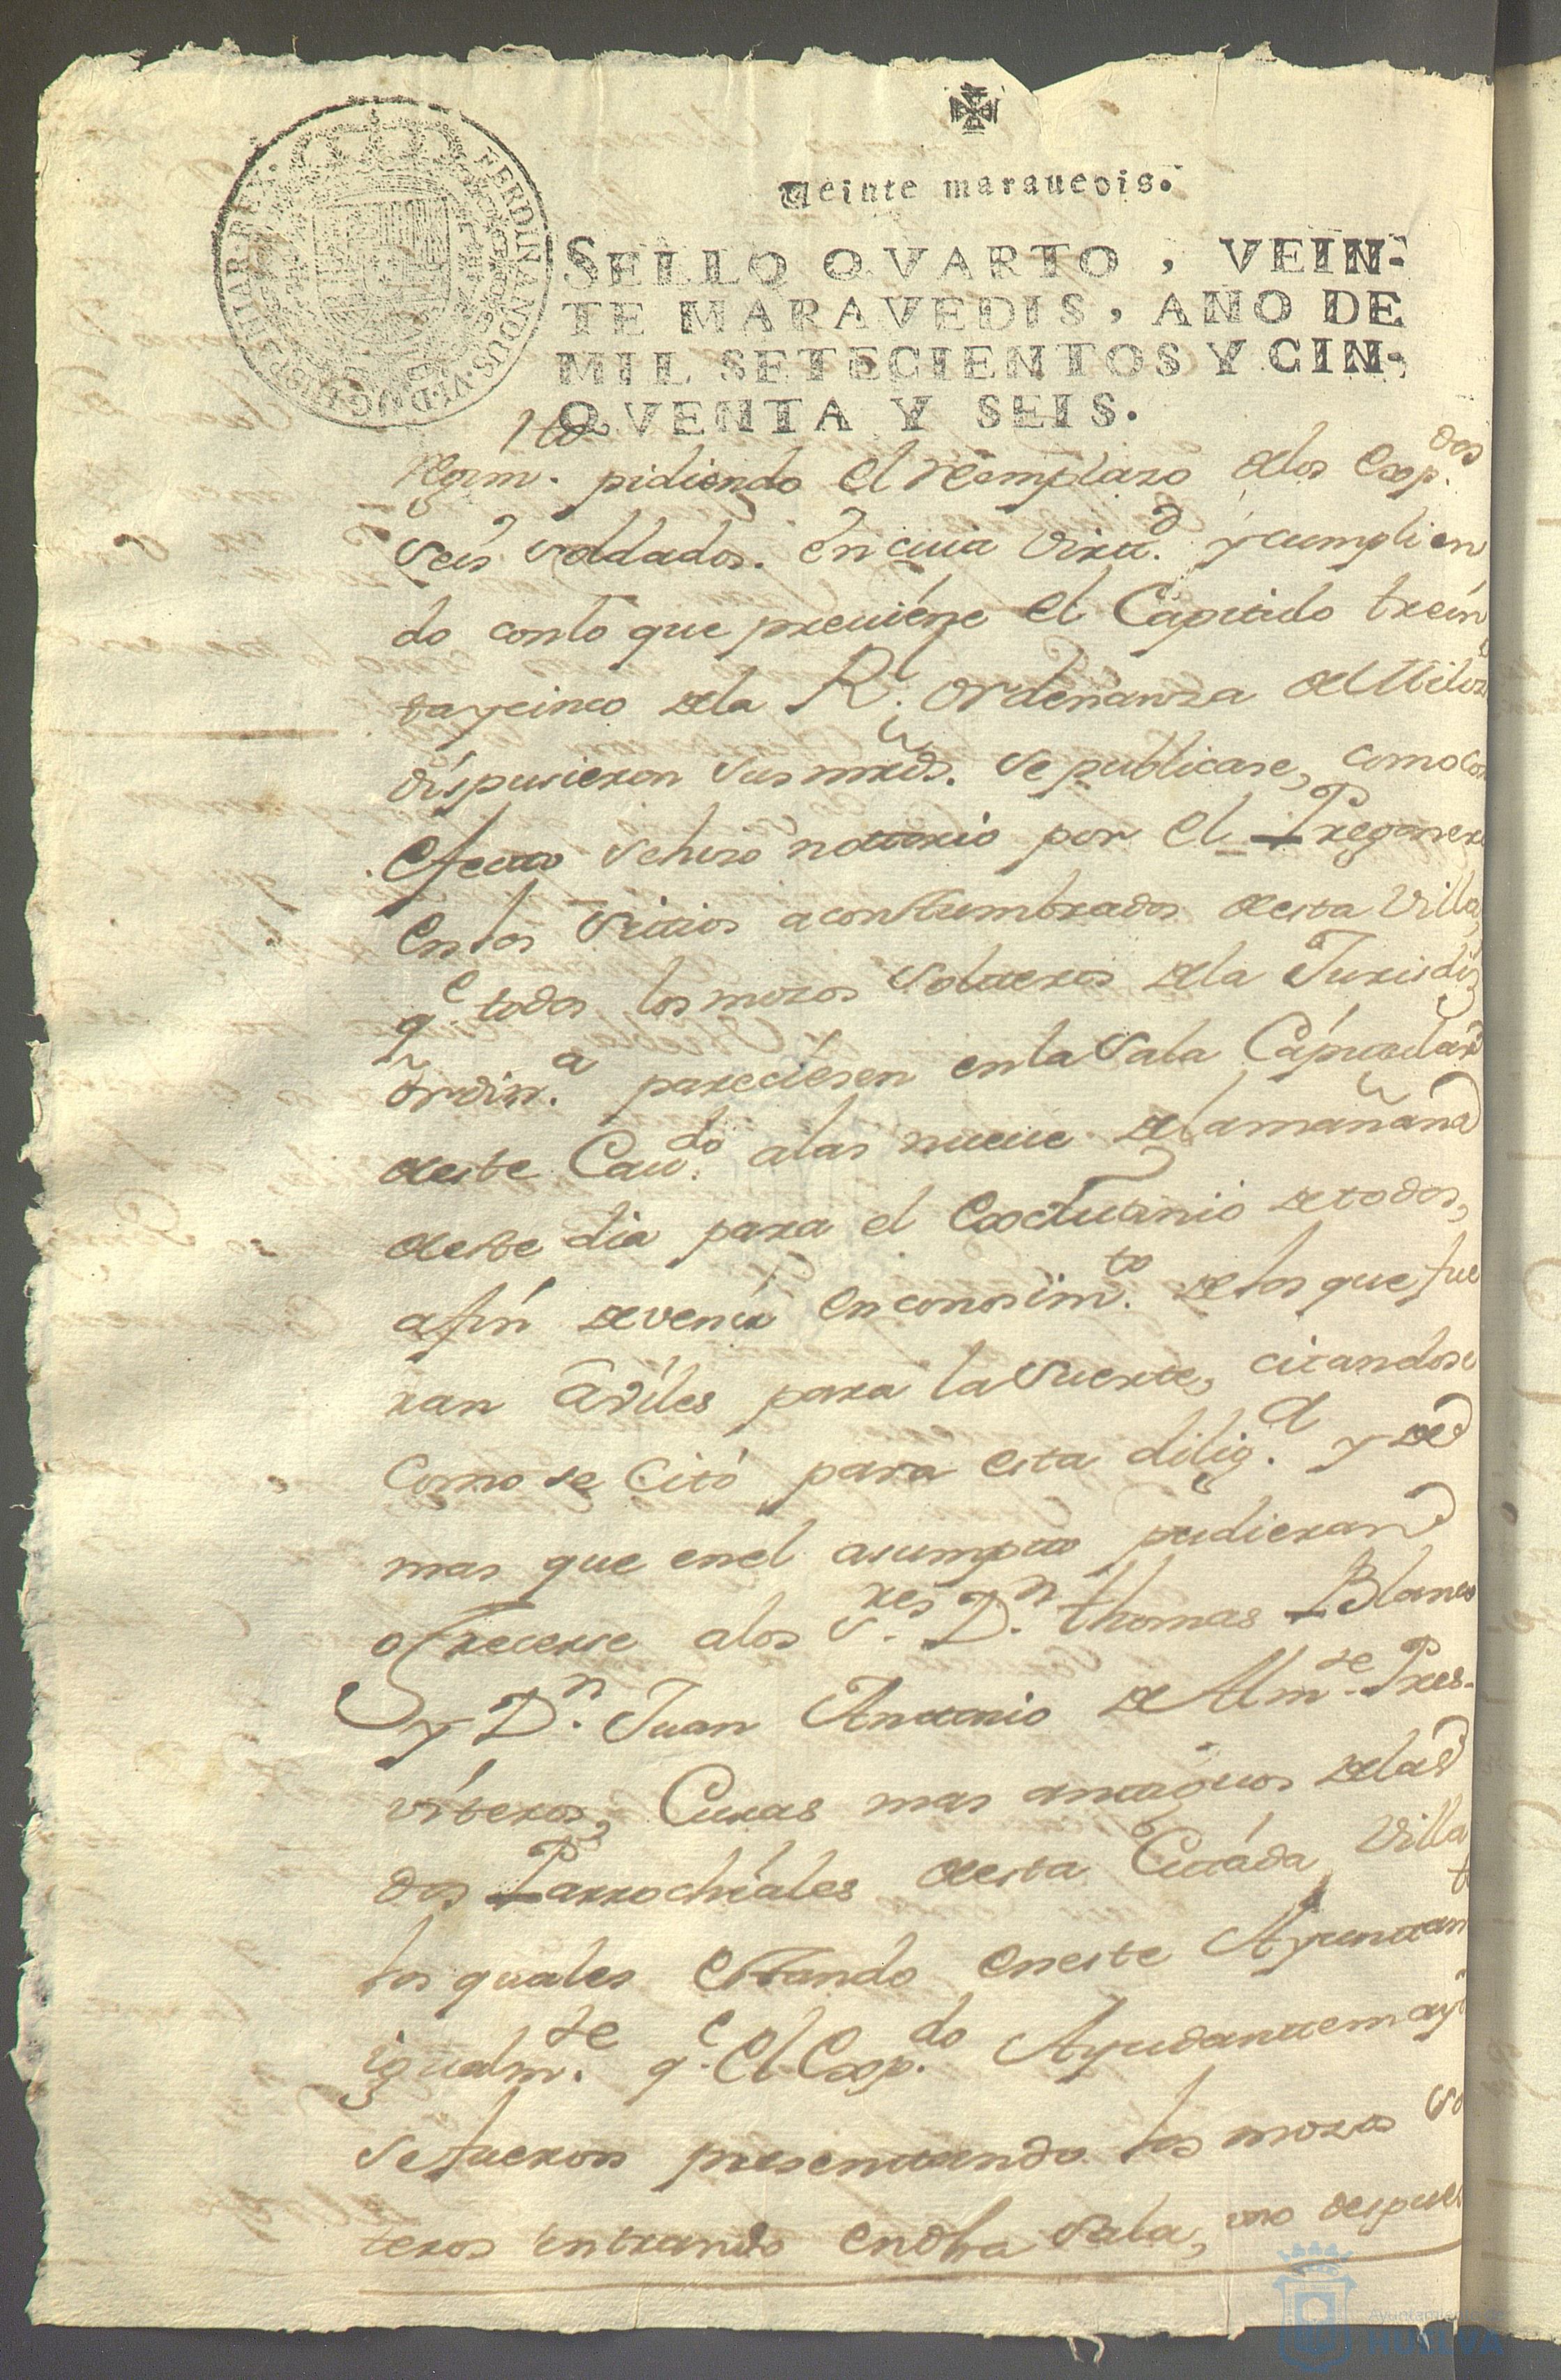 Veinte maravedis.
SELLO QVARTO, VEIN-
TE MARAVEDIS, AÑO DE
MIL SETECIENTOS Y CIN-
QVENTA Y SEIS.
FERDINANDUS. VI. D. G. HISPANIAR. REX.
regim.to pidiendo el reemplazo delos exp.dos
seis soldados. En cuia virtd. y cumplien
do conlo que previene el Capitulo trein
taycinco dela Rl. ordenanza de Miliz
dispusieron sus mrds. se publicase, como con
efecto sehizo notorio por el Pregonero
en los sitios acostumbrados desta Villa,
q.e todos los mozos solteros dela Jurisdiz
ordin.a pareciesen enla Sala Capitular
deste Cav.do alas nueve dela mañana
deste dia para el exctutinio detodos,
afin devenir enconosim.to delos que fue
ran aviles para la suerte, citandose
como se citó para esta dilig.a y de
mas que enel asumpto pudieran
ofrecerse alos S.res D.n Thomas Blanco
y D.n Juan Antonio de Alm.te Pres-
víteros, Curas mas antiguos delas
dos Parrochiales desta Citada Villa
los quales estando eneste Ayuntam.t
igualm.te q.e el Exp.do Ayudantemayr
sefueron presentando los mozos sol
teros entrando endha Sala, uno despues
Ayuntamiento de
HUELVA